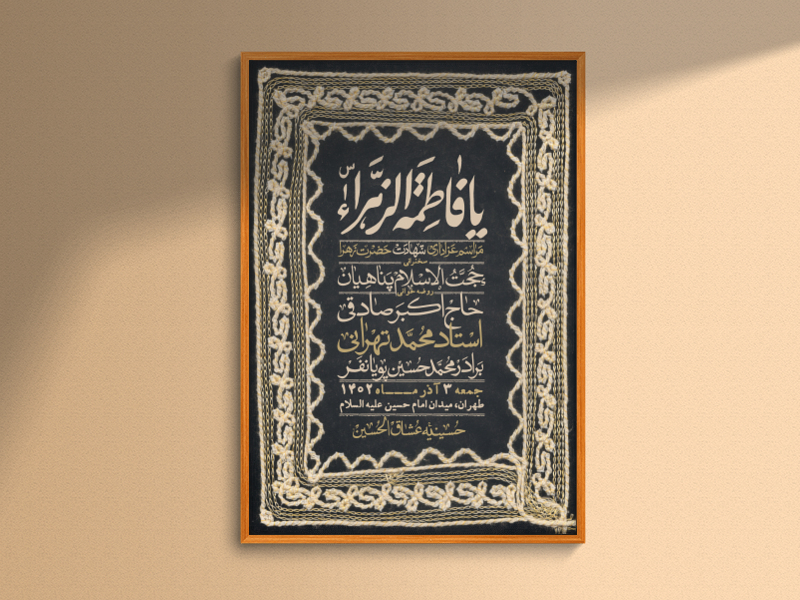 یا فاطمة الزهراء س
مراسم عزاداری شهادت حضرت زهرا
سخنرانی
حُجَّتُ الاِسْلام پناهیان
روضه خوانی
حاج اکبر صادقی
استاد محمد تهرانی
برادر محمد حسین پویانفر
جمعه ۳ آذر مـــاه ۱۴۰۲
طهران، میدان امام حسین علیه السلام
حسینیه عُشاق الحسین